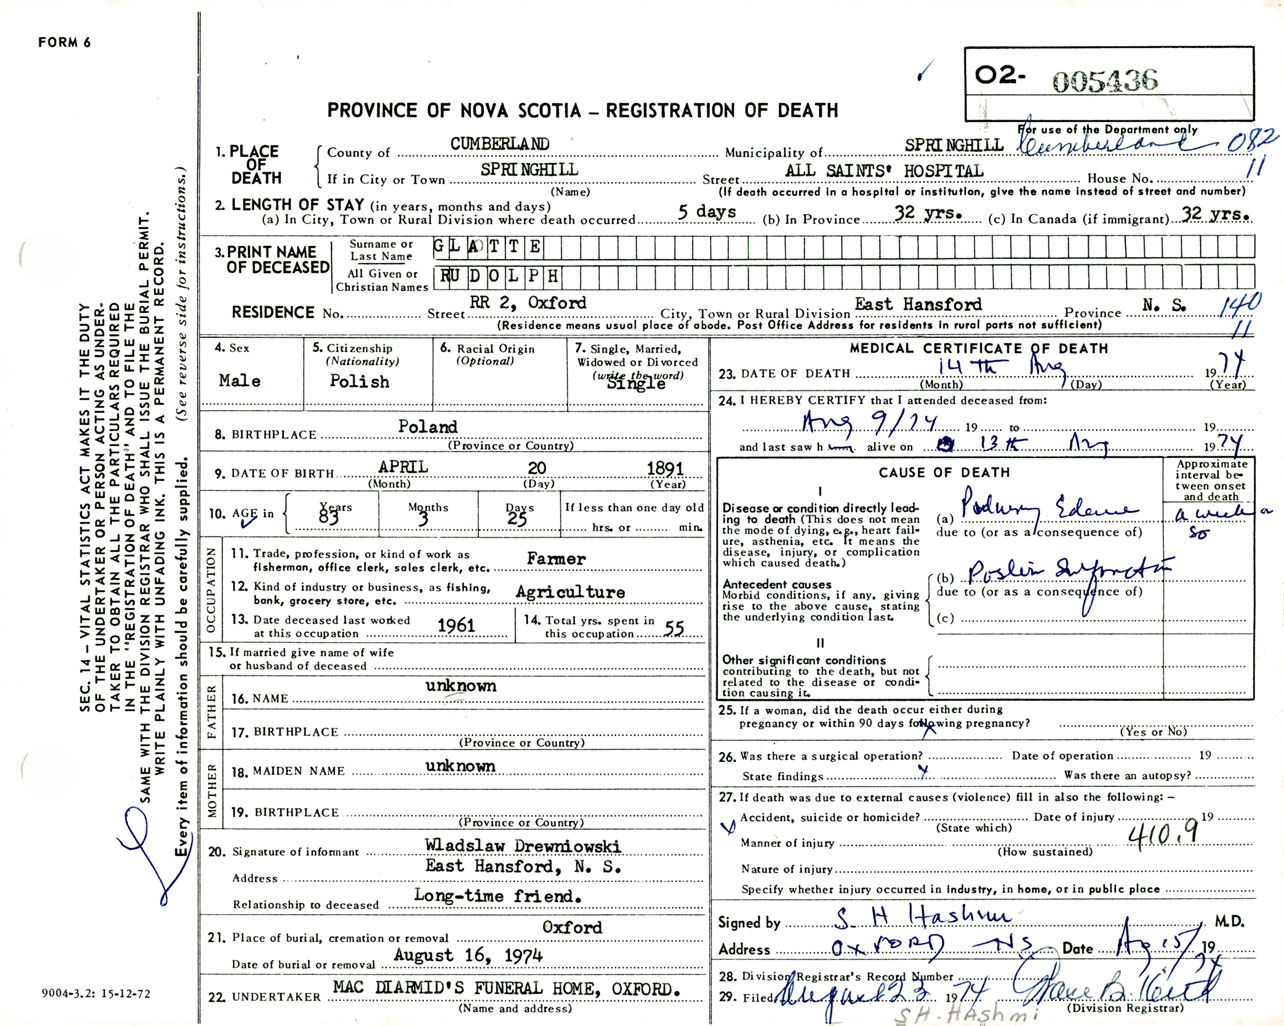 FORM 6
O2- 005436
PROVINCE OF NOVA SCOTIA – REGISTRATION OF DEATH
For use of the Department only
Cumberland 082
11
1. PLACE OF DEATH
County of CUMBERLAND Municipality of SPRINGHILL
If in City or Town SPRINGHILL Street ALL SAINTS' HOSPITAL House No.
(Name) (If death occurred in a hospital or institution, give the name instead of street and number)
2. LENGTH OF STAY (in years, months and days)
(a) In City, Town or Rural Division where death occurred 5 days (b) In Province 32 yrs. (c) In Canada (if immigrant) 32 yrs.
3. PRINT NAME OF DECEASED
Surname or Last Name GLATTE
All Given or Christian Names RUDOLPH
RESIDENCE No. Street RR 2, Oxford City, Town or Rural Division East Hansford Province N. S. 140
(Residence means usual place of abode. Post Office Address for residents in rural parts not sufficient) 11
4. Sex
Male
5. Citizenship
(Nationality)
Polish
6. Racial Origin
(Optional)
7. Single, Married, Widowed or Divorced
(write the word)
Single
8. BIRTHPLACE Poland
(Province or Country)
9. DATE OF BIRTH APRIL 20 1891
(Month) (Day) (Year)
10. AGE in Years 83 Months 3 Days 25 If less than one day old
hrs. or min.
OCCUPATION
11. Trade, profession, or kind of work as fisherman, office clerk, sales clerk, etc. Farmer
12. Kind of industry or business, as fishing, bank, grocery store, etc. Agriculture
13. Date deceased last worked at this occupation 1961
14. Total yrs. spent in this occupation 55
15. If married give name of wife or husband of deceased
FATHER
16. NAME unknown
17. BIRTHPLACE
(Province or Country)
MOTHER
18. MAIDEN NAME unknown
19. BIRTHPLACE
(Province or Country)
20. Signature of informant Wladslaw Drewniowski
Address East Hansford, N. S.
Relationship to deceased Long-time friend.
21. Place of burial, cremation or removal Oxford
Date of burial or removal August 16, 1974
22. UNDERTAKER MAC DIARMID'S FUNERAL HOME, OXFORD.
(Name and address)
MEDICAL CERTIFICATE OF DEATH
23. DATE OF DEATH 14 th Aug 1974
(Month) (Day) (Year)
24. I HEREBY CERTIFY that I attended deceased from:
Aug 9/74 19 to 19
and last saw h alive on 13th Aug 1974
CAUSE OF DEATH
Approximate interval between onset and death
I
Disease or condition directly leading to death (This does not mean the mode of dying, e.g., heart failure, asthenia, etc. It means the disease, injury, or complication which caused death.)
(a) Edema a week or so
due to (or as a consequence of)
Antecedent causes
Morbid conditions, if any, giving rise to the above cause, stating the underlying condition last.
(b)
due to (or as a consequence of)
(c)
II
Other significant conditions contributing to the death, but not related to the disease or condition causing it.
25. If a woman, did the death occur either during pregnancy or within 90 days following pregnancy?
(Yes or No)
26. Was there a surgical operation? Date of operation 19
State findings Was there an autopsy?
27. If death was due to external causes (violence) fill in also the following: –
Accident, suicide or homicide? Date of injury 19
(State which)
410.9
Manner of injury
(How sustained)
Nature of injury
Specify whether injury occurred in industry, in home, or in public place
Signed by S H Hashmi M.D.
Address OXFORD NS Date Aug 15/ 1974
28. Division Registrar's Record Number
29. Filed August 23 1974
(Division Registrar)
SH. HAshmi
SEC. 14 – VITAL STATISTICS ACT MAKES IT THE DUTY
OF THE UNDERTAKER OR PERSON ACTING AS UNDER-
TAKER TO OBTAIN ALL THE PARTICULARS REQUIRED
IN THE "REGISTRATION OF DEATH" AND TO FILE THE
SAME WITH THE DIVISION REGISTRAR WHO SHALL ISSUE THE BURIAL PERMIT.
WRITE PLAINLY WITH UNFADING INK. THIS IS A PERMANENT RECORD.
Every item of information should be carefully supplied. (See reverse side for instructions.)
9004-3.2: 15-12-72